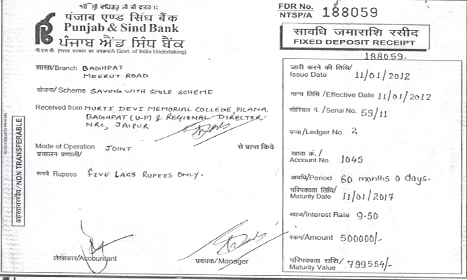 पंजाब एण्ड सिंध बैंक
Punjab & Sind Bank
(A Govt. of India Undertaking)
ਪੰਜਾਬ ਐਂਡ ਸਿੰਧ ਬੈਂਕ
FDR No.
NTSP/A 188059
सावधि जमाराशि रसीद
FIXED DEPOSIT RECEIPT
188059.
शाखा/Branch BAGHPAT
MEERUT ROAD
योजना/Scheme SAVING WITH SMILE SCHEME
Received from MURTI DEVI MEMORIAL COLLEGE, PILANA,
BAGHPAT (U.P) & REGIONAL DIRECTOR
NRC, JAIPUR
Mode of Operation JOINT से प्राप्त किये
प्रचालन प्रणाली/
रूपये Rupees FIVE LACS RUPEES ONLY.
अहस्तांतरणीय/NON TRANSFERABLE
लेखाकार/Accountant
प्रबंधक/Manager
जारी करने की तिथि/
Issue Date 11/01/2012
मान्य तिथि/Effective Date 11/01/2012
सीरियल नं./Serial No. 59/11
पन्ना/Ledger No. 2
खाता क्र./
Account No. 1045
अवधि/Period 60 months 0 days.
परिपक्वता तिथि/
Maturity Date 11/01/2017
ब्याज/Interest Rate 9-50
रकम/Amount 500000/-
परिपक्वता राशि/
Maturity Value 799564/-